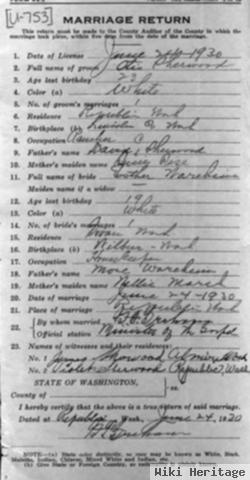 [U-753]
MARRIAGE RETURN
This return must be made to the County Auditor of the County in which the
marriage took place, within five days from the date of the marriage.
1. Date of License June 24 1920
2. Full name of groom Sherwood
3. Age last birthday 23
4. Color (a) White
5. No. of groom's marriages 1
6. Residence Republic Wash
7. Birthplace (b) Lincoln Co Wash
8. Occupation
9. Father's name Sherwood
10. Mother's maiden name Rose
11. Full name of bride Esther Wareheim
Maiden name if a widow
12. Age last birthday 19
13. Color (a) White
14. No. of bride's marriages
15. Residence Wash
16. Birthplace (b) Wilbur - Wash
17. Occupation Housekeeper
18. Father's name Wareheim
19. Mother's maiden name Nettie Marsh
20. Date of marriage June 24-1920
21. Place of marriage Republic Wash
22. By whom married
Official station Minister of the Gospel
23. Names of witnesses and their residences:
No. 1 James Sherwood Wash
No. 2 Violet Sherwood Republic, Wash
STATE OF WASHINGTON,
County of
I hereby certify that the above is a true return of said marriage.
Dated at Republic Wash, June 24, 1920
NOTE.—(a) State color distinctly, so race may be known as White, Black,
Mulatto, Indian, Chinese, Mixed White and Indian, etc.
(b) Give State or Foreign Country, so
Wiki Heritage